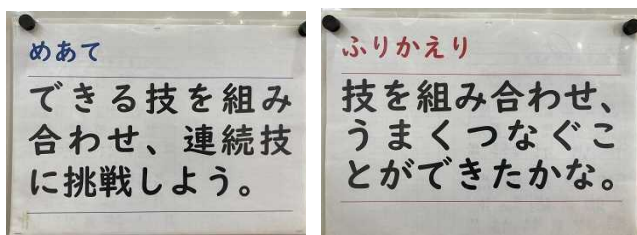 めあて
できる技を組み
合わせ、連続技
に挑戦しよう。
ふりかえり
技を組み合わせ、
うまくつなぐこ
とができたかな。